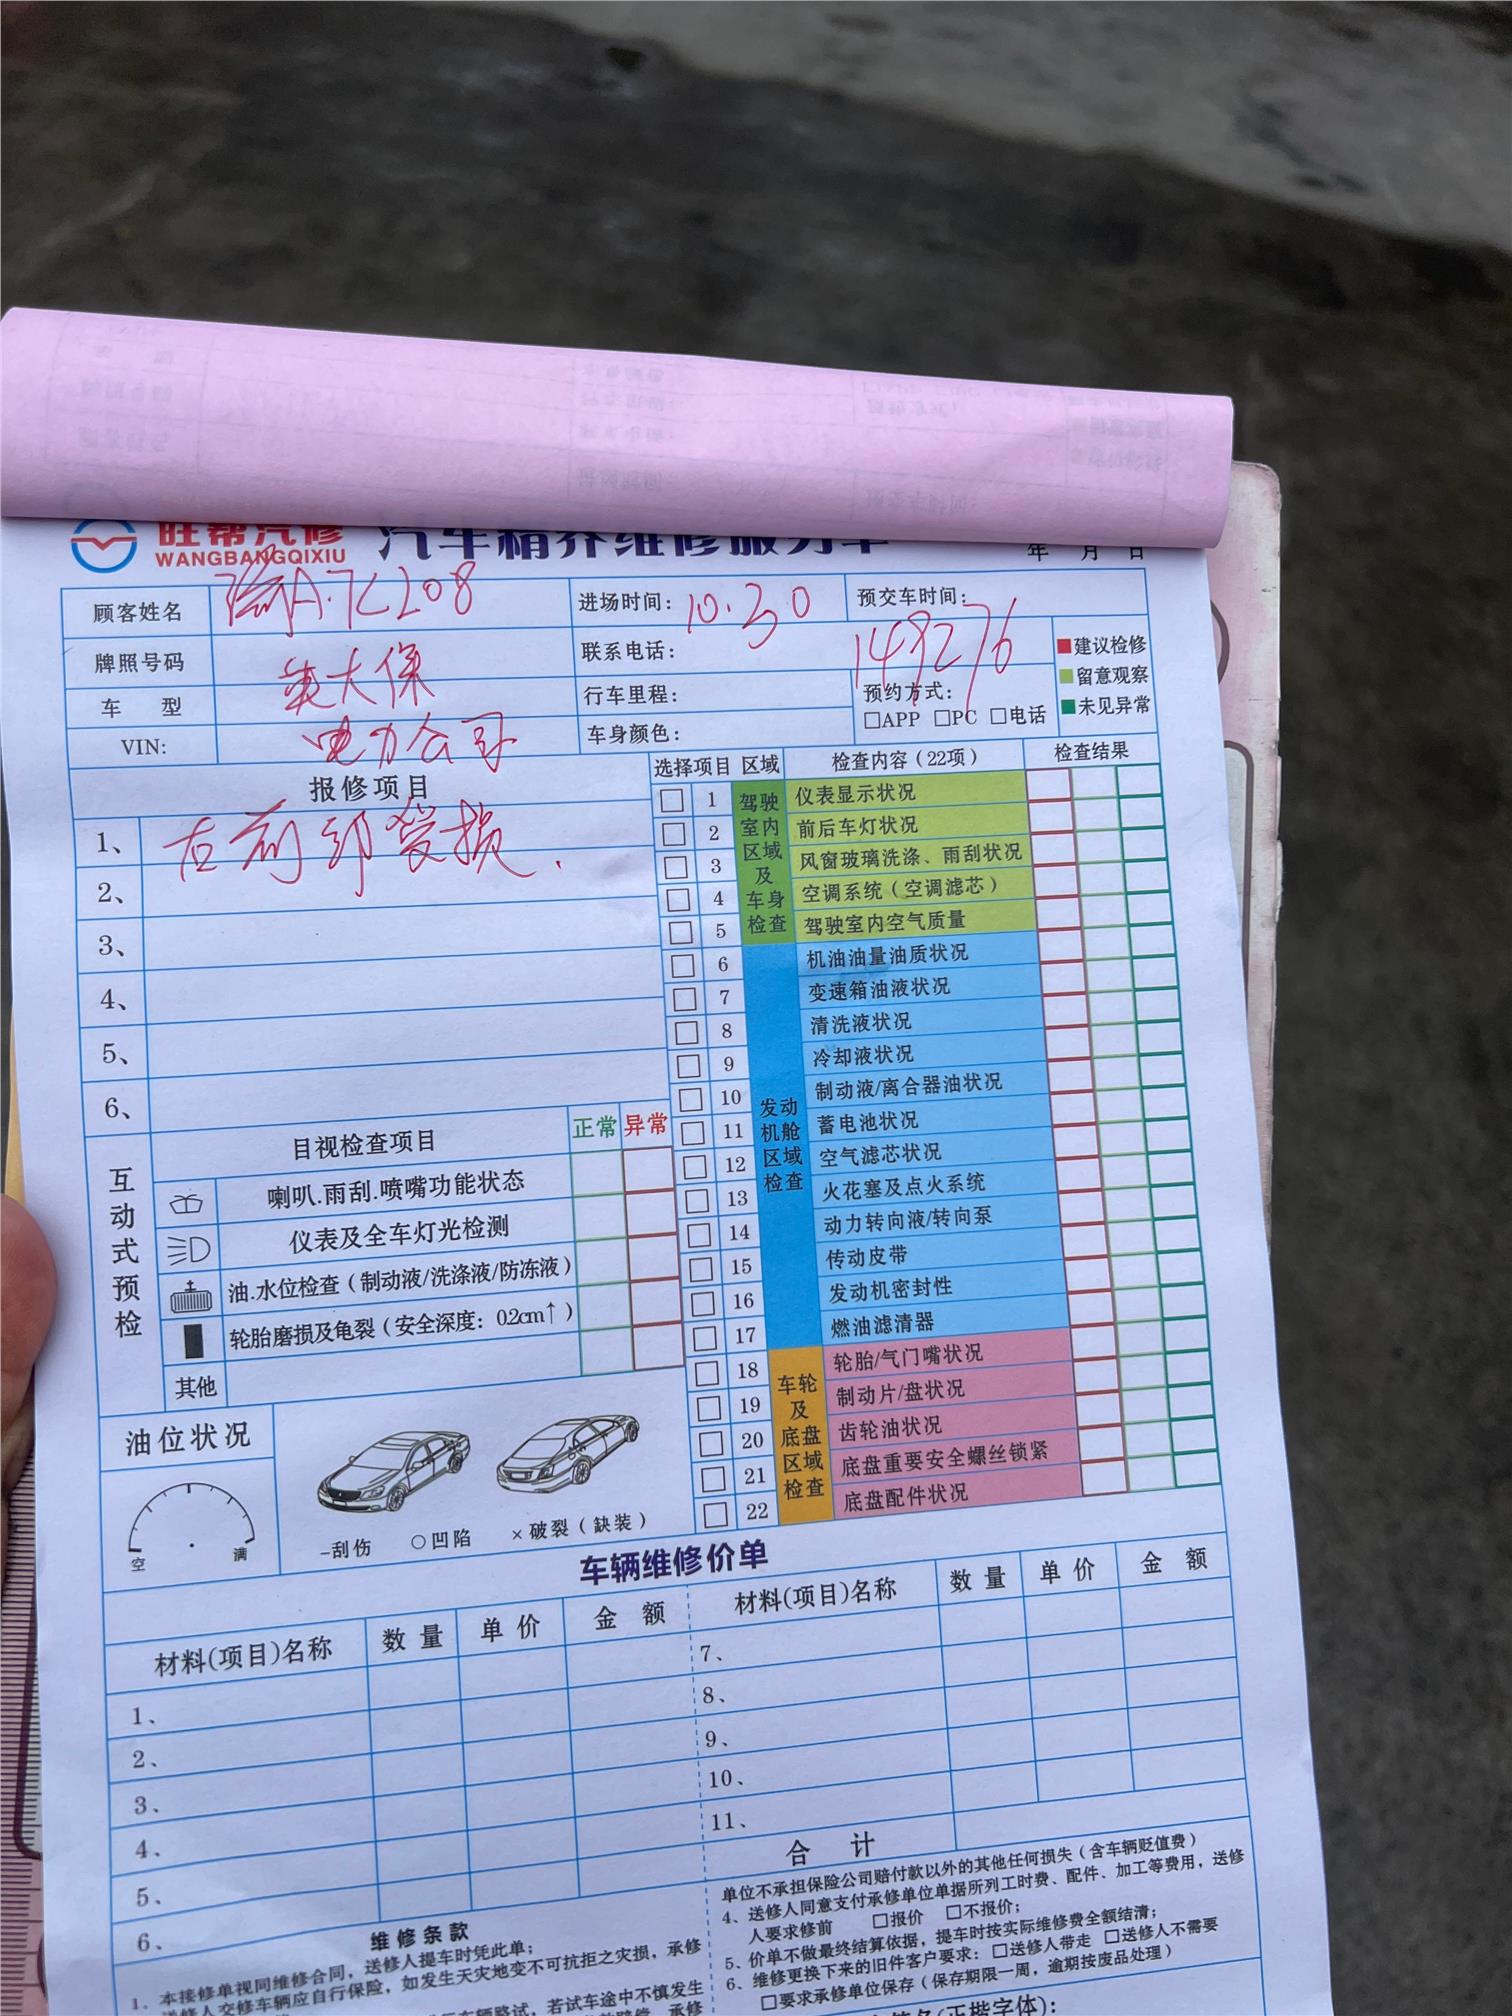 旺帮汽修
WANGBANGQIXIU
汽车精养维修服务单
年 月 日
顾客姓名
豫A·7C208
进场时间: 10.30
预交车时间:
牌照号码
联系电话:
149276
车 型
英大保
行车里程:
预约方式:
□APP □PC □电话
VIN:
电力公司
车身颜色:
建议检修
留意观察
未见异常
报修项目
1、右前部受损.
2、
3、
4、
5、
6、
选择项目 区域 检查内容(22项) 检查结果
驾驶室内区域及车身检查
1 仪表显示状况
2 前后车灯状况
3 风窗玻璃洗涤、雨刮状况
4 空调系统(空调滤芯)
5 驾驶室内空气质量
发动机舱区域检查
6 机油油量油质状况
7 变速箱油液状况
8 清洗液状况
9 冷却液状况
10 制动液/离合器油状况
11 蓄电池状况
12 空气滤芯状况
13 火花塞及点火系统
14 动力转向液/转向泵
15 传动皮带
16 发动机密封性
17 燃油滤清器
车轮及底盘区域检查
18 轮胎/气门嘴状况
19 制动片/盘状况
20 齿轮油状况
21 底盘重要安全螺丝锁紧
22 底盘配件状况
互动式预检
目视检查项目 正常 异常
喇叭.雨刮.喷嘴功能状态
仪表及全车灯光检测
油.水位检查(制动液/洗涤液/防冻液)
轮胎磨损及龟裂(安全深度: 0.2cm↑)
其他
油位状况
空 满
-刮伤 ○凹陷 ×破裂(缺装)
车辆维修价单
材料(项目)名称 数量 单价 金额
1、
2、
3、
4、
5、
6、
材料(项目)名称 数量 单价 金额
7、
8、
9、
10、
11、
合 计
维修条款
1、本接修单视同维修合同，送修人提车时凭此单;
送修人交修车辆应自行保险，如发生天灾地变不可抗拒之灾损，承修
车辆路试，若试车途中不慎发生
单位不承担保险公司赔付款以外的其他任何损失(含车辆贬值费)
4、送修人同意支付承修单位单据所列工时费、配件、加工等费用，送修
人要求修前 □报价 □不报价;
5、价单不做最终结算依据，提车时按实际维修费全额结清;
6、维修更换下来的旧件客户要求: □送修人带走 □送修人不需要
□要求承修单位保存(保存期限一周，逾期按废品处理)
(正楷字体):